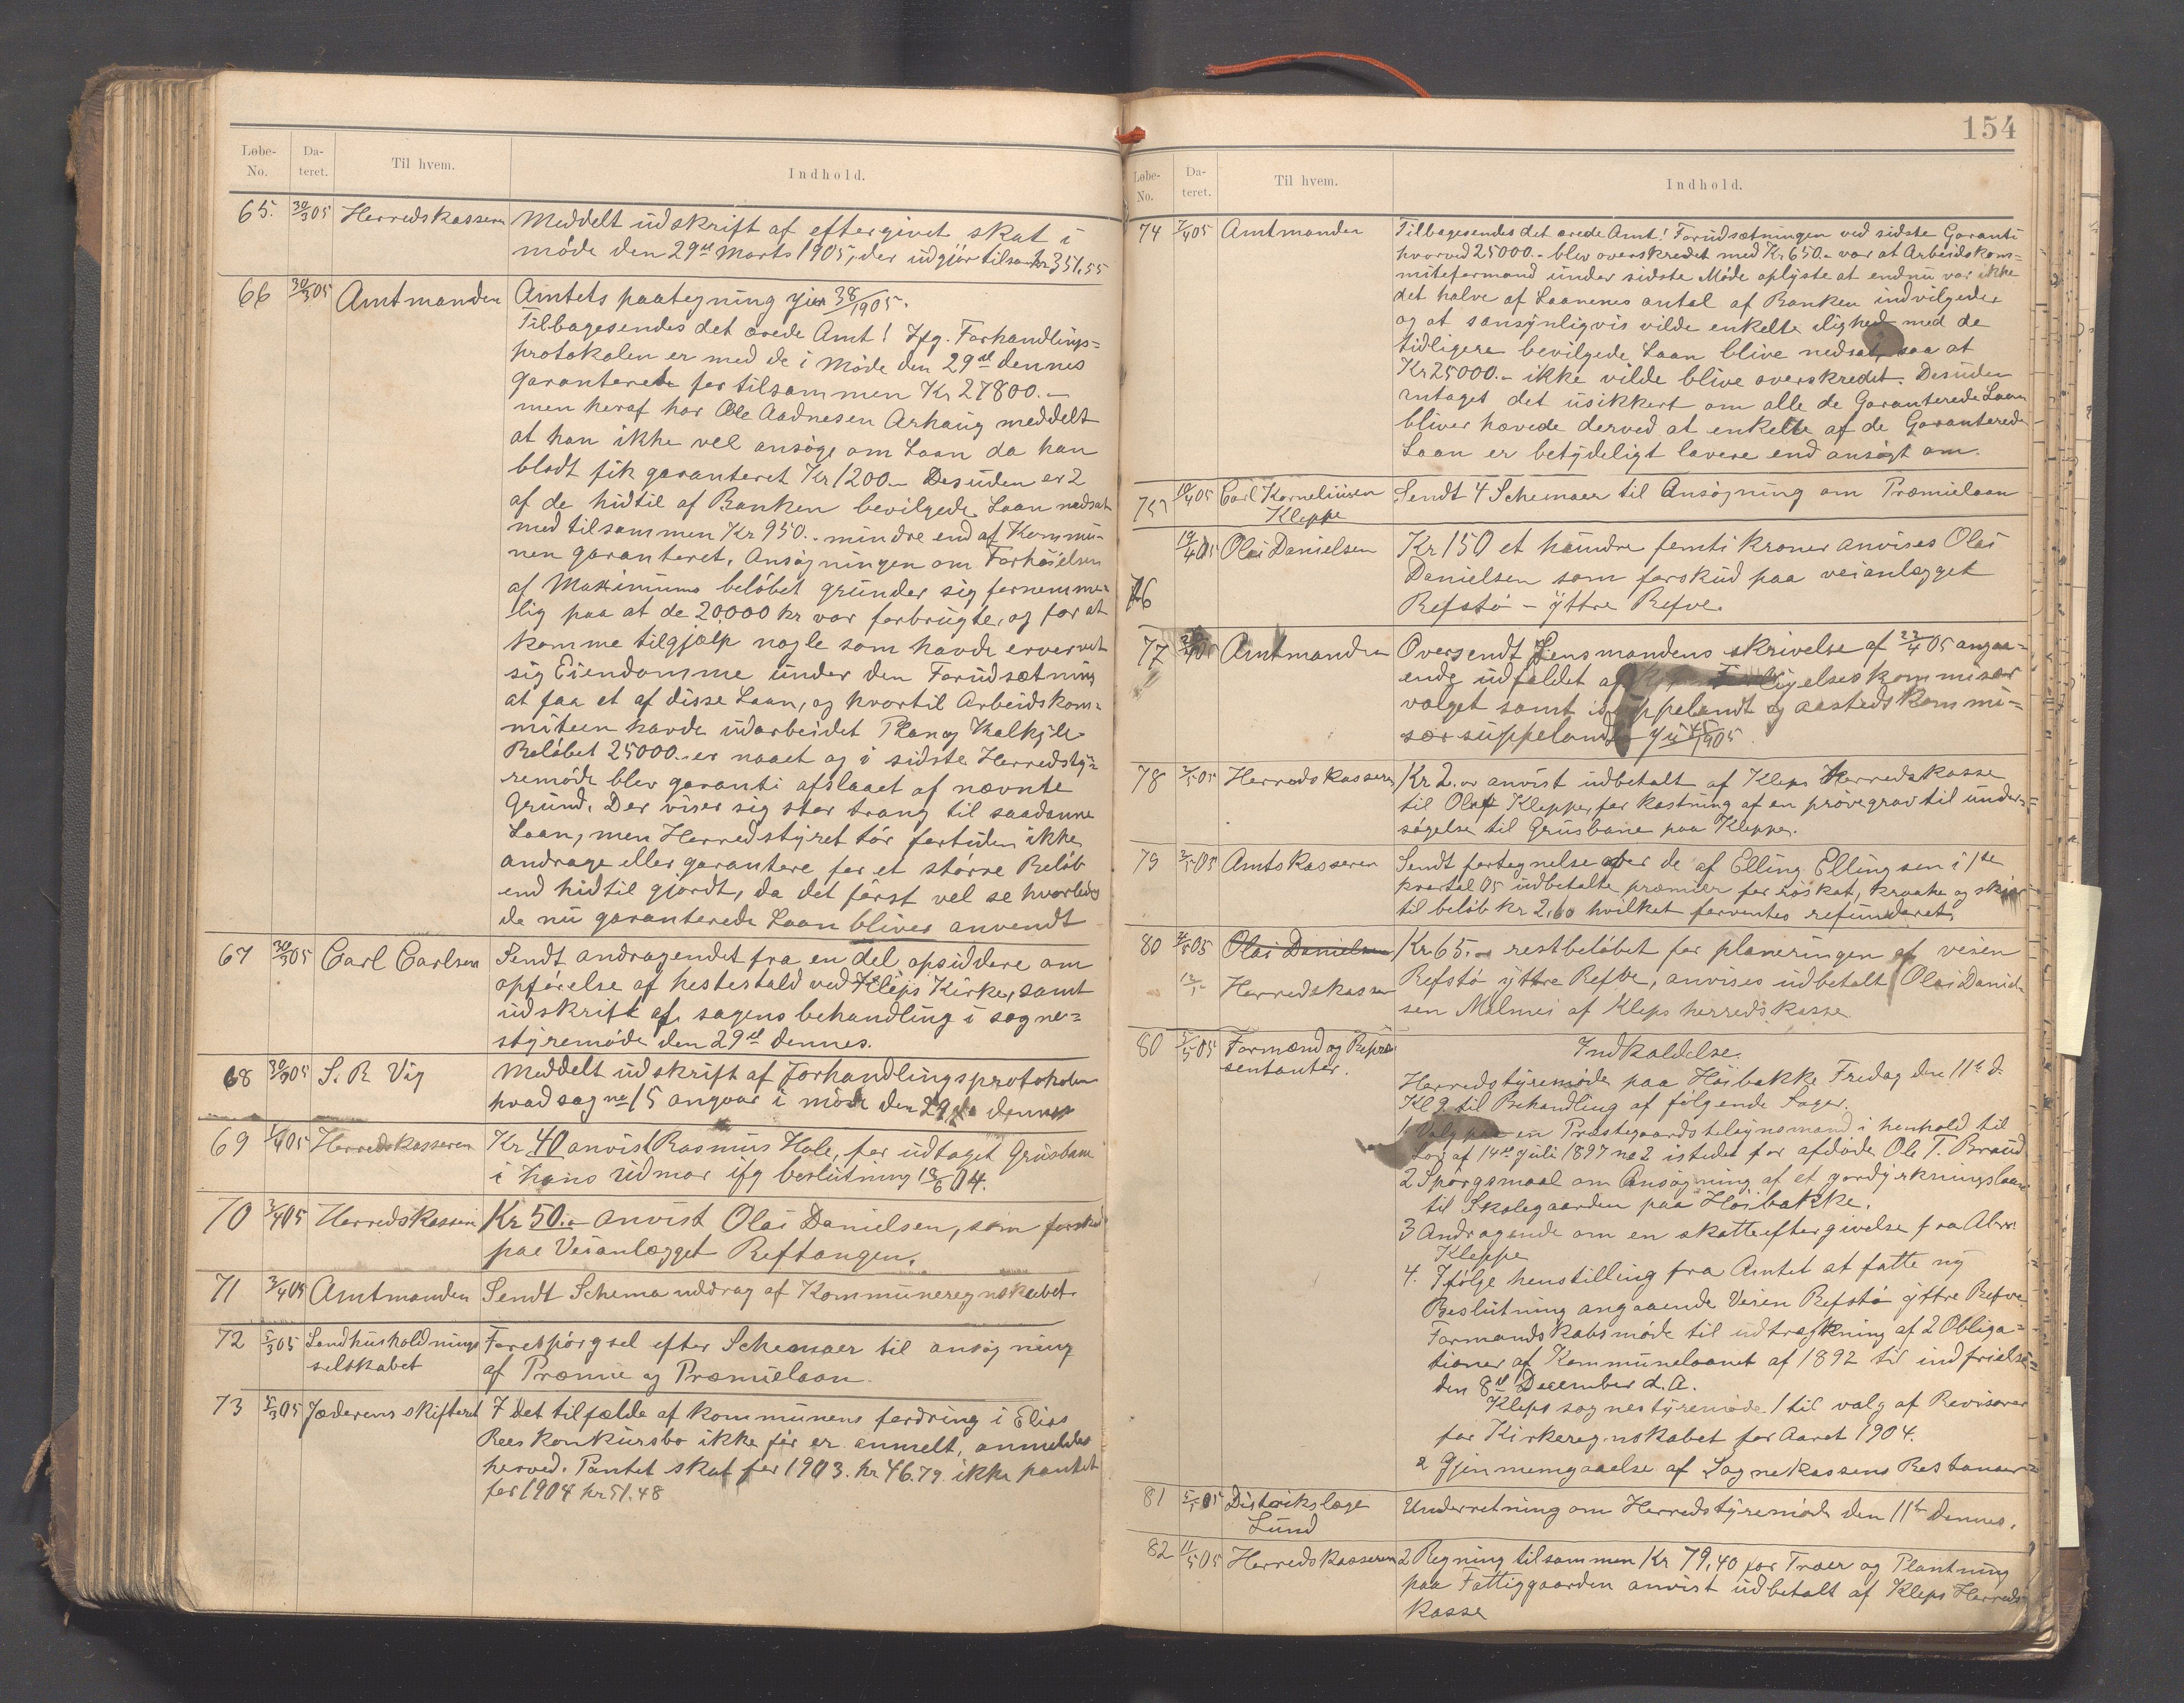 Løbe-No. Dateret. Til hvem. Indhold.
65. 30/3 05 Herredskasseren Meddelt udskrift af eftergivet skat i
møde den 29de Marts 1905, der udgjør tilsam kr 351,55
66 30/3 05 Amtmanden Amtets paategning 38/1905.
Tilbagesendes det ærede Amt! Ifg. Forhandlings=
protokolen er med de i Møde den 29de dennes
garanterede for tilsammen Kr 27800.-
men heraf har Ole Aadnesen Arhaug meddelt
at han ikke vel ansøge om Laan da han
blodt fik garanteret Kr 1200.- Desuden er 2
af de hidtil af Banken bevilgede Laan nedsat
med tilsammen Kr 950.- mindre end af Kommu-
nen garanteret. Ansøgningen om Forhøielsen
af Maximums beløbet grunder sig fornemme-
lig paa at de 20,000 kr var forbrugte, og for at
komme tilgjælp nogle som havde ervervet
sig Eiendomme under den Forudsætning
at faa et af disse Laan, og hvortil Arbeidskom=
miteen havde udarbeidet Plan og Kalkyle
Beløbet 25000.- er naaet og i sidste Herredsty=
remøde blev garanti afslaaet af nævnte
Grund. Der viser sig stor trang til saadanne
Laan, men Herredstyret tør fortiden ikke
andrage eller garantere for et større Beløb
end hidtil gjordt, da det først vel se hvorledes
de nu garanterede Laan bliver anvendt
67 30/3 05 Carl Carlsen Sendt andragendet fra en del opsiddere om
opførelse af hestestald ved Kleps Kirke, samt
udskrift af sagens behandling i sogne=
styremøde den 29de dennes.
68 30/3 05 S. R Vig Meddelt udskrift af Forhandlingsprotokolen
hvad sag no 15 angaar i møde den 29de dennes
69 1/4 05 Herredskasseren Kr 40 anvist Rasmus Hole, for udtaget Grusbane
i hans Udmar ifg beslutning 18/6 04.
70 3/4 05 Herredskasseren Kr 50.- anvist Olai Danielsen, som forskud
paa Veianlægget Reftangen.
71 3/4 05 Amtmanden Sendt Schema uddrag af Kommuneregnskabet.
72 5/3 05 Landhusholdnings
selskabet Forespørgsel efter Schemaer til ansøgning
af Præmie og Præmielaan.
73 5/3 05 Jæderens skifteret I det tilfælde af kommunens fordring i Elias
Rees konkursbo ikke før er anmelt, anmeldes
herved. Pantet skat for 1903. kr 46.79. ikke pantet
for 1904 kr 51.48
154
Løbe-No. Dateret. Til hvem. Indhold.
74 7/4 05 Amtmanden Tilbagesendes det ærede Amt! Forudsætningen ved sidste Garanti
hvorved 25000.- blev overskredet med Kr 650.- var at Arbeidskom=
miteformand under sidste Møde oplyste at endnu var ikke
det halve af Laanenes antal af Banken indvilgede
og at sansynligvis vilde enkelte ilighed med de
tidligere bevilgede Laan blive nedsat, saa at
Kr 25000.- ikke vilde blive overskredet. Desuden
antaget det usikkert om alle de Garanterede Laan
bliver hævede derved at enkelte af de Garanterede
Laan er betydeligt lavere end ansøgt om.
75 10/4 05 Carl Korneliusen
Kleppe Sendt 4 Schemaer til Ansøgning om Præmielaan
76 19/4 05 Olai Danielsen Kr 150 et hundre femti kroner anvises Olai
Danielsen som forskud paa veianlægget
Refstø - Yttre Refve.
77 Amtmanden Oversendt Lensmandens skrivelse af 22/4 05 angaa=
ende udfaldet af
valget samt suppelandt og aastedskommi=
sær suppelandt 1905
78 2/5 05 Herredskasseren Kr 2.00 anvist udbetalt af Kleps Herredskasse
til Olaf Kleppe, for kastning af en prøvegrav til under=
søgelse til Grusbane paa Kleppe.
79 2/5 05 Amtskasseren Sendt fortegnelse over de af Elling Ellingsen i 1ste
kvartal 05 udbetalte præmier for røskat, kraake og skjor
til beløb kr 2,60 hvilket forventes refunderet.
80 05 Olai Danielsen Kr 65.- restbeløbet for planeringen af veien
12/5 Herredskassen Refstø yttre Refve, anvises udbetalt Olai Daniel
sen Melmei af Kleps herredskasse
80 5/5 05 Formænd og Repræ
sentanter. Indkaldelse.
Herredstyremøde paa Høibakke Fredag den 11te d.
Kl 9 til Behandling af følgende Sager.
1 Valg paa en Præstegaardstilsynsmand i henhold til
Lov af 14de Juli 1897 no 2 istedet for afdøde Ole T. Braud
2 Spørgsmaal om Ansøgning af et jordyrkningslaan
til Skolegaarden paa Høibakke.
3 Andragende om en skatteeftergivelse fra
Kleppe
4. Ifølge henstilling fra Amtet at fatte ny
Beslutning angaaende Veien Refstø yttre Refve.
Formandskabsmøde til udtrækning af 2 Obliga=
tioner af Kommunelaanet af 1892 til indfrielse
den 8de December d. A.
Kleps sognestyremøde 1 til valg af Revisorer
for Kirkeregnskabet for Aaret 1904.
2 Gjennemgaaelse af Sognekassens Restancer
81 5/5 05 Distrikslæge
Lund Underretning om Herredstyremøde den 11te dennes.
82 11/5 05 Herredskasseren 2 Regning tilsammen Kr 79,40 for Træer og Plantning
paa Fattiggaarden anvist udbetalt af Kleps Herreds
kasse